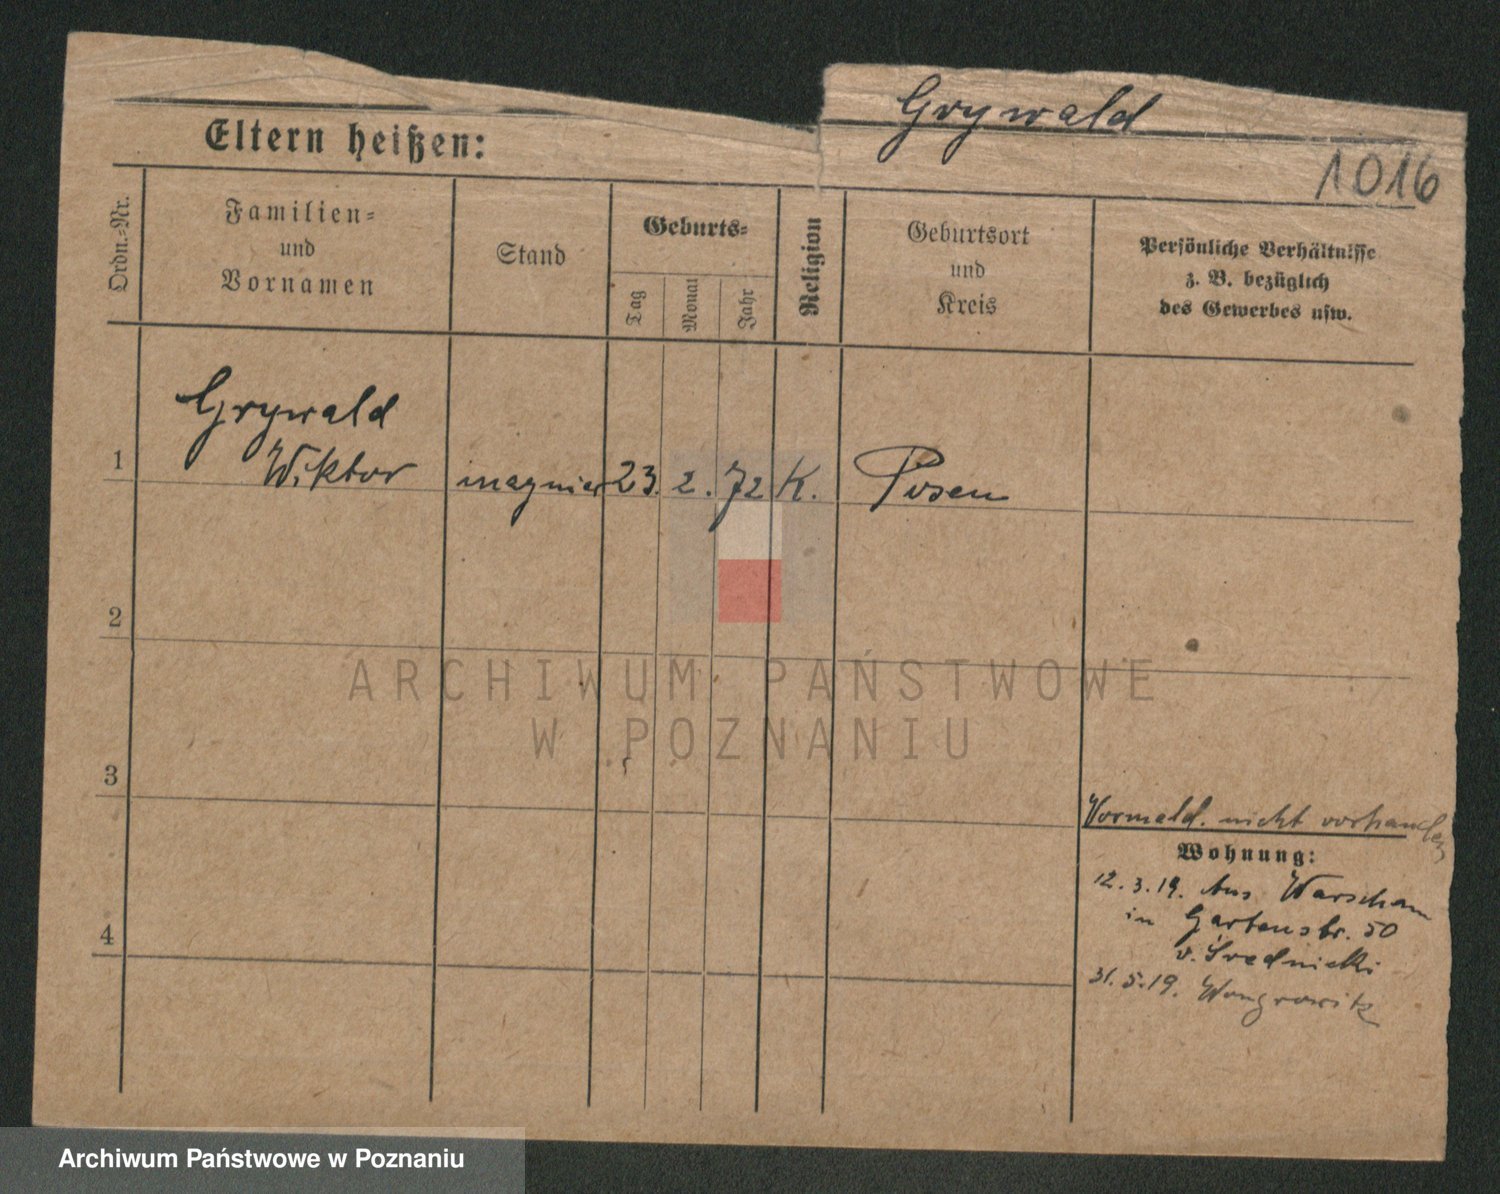 Grywald
1016
Eltern heißen:
Ordn.-Nr.
Familien-
und
Vornamen
Stand
Geburts-
Tag
Monat
Jahr
Religion
Geburtsort
und
Kreis
Persönliche Verhältnisse
z. B. bezüglich
des Gewerbes usw.
Grywald
1 Wiktor 23. 2. 72 K. Posen
2
3
4
Vormeld. nicht vorhanden
Wohnung:
12.3.19. Aus Warschau
in Gartenstr. 50
v. Średnicki
31.5.19. Wongrowitz
ARCHIWUM PAŃSTWOWE
W POZNANIU
Archiwum Państwowe w Poznaniu